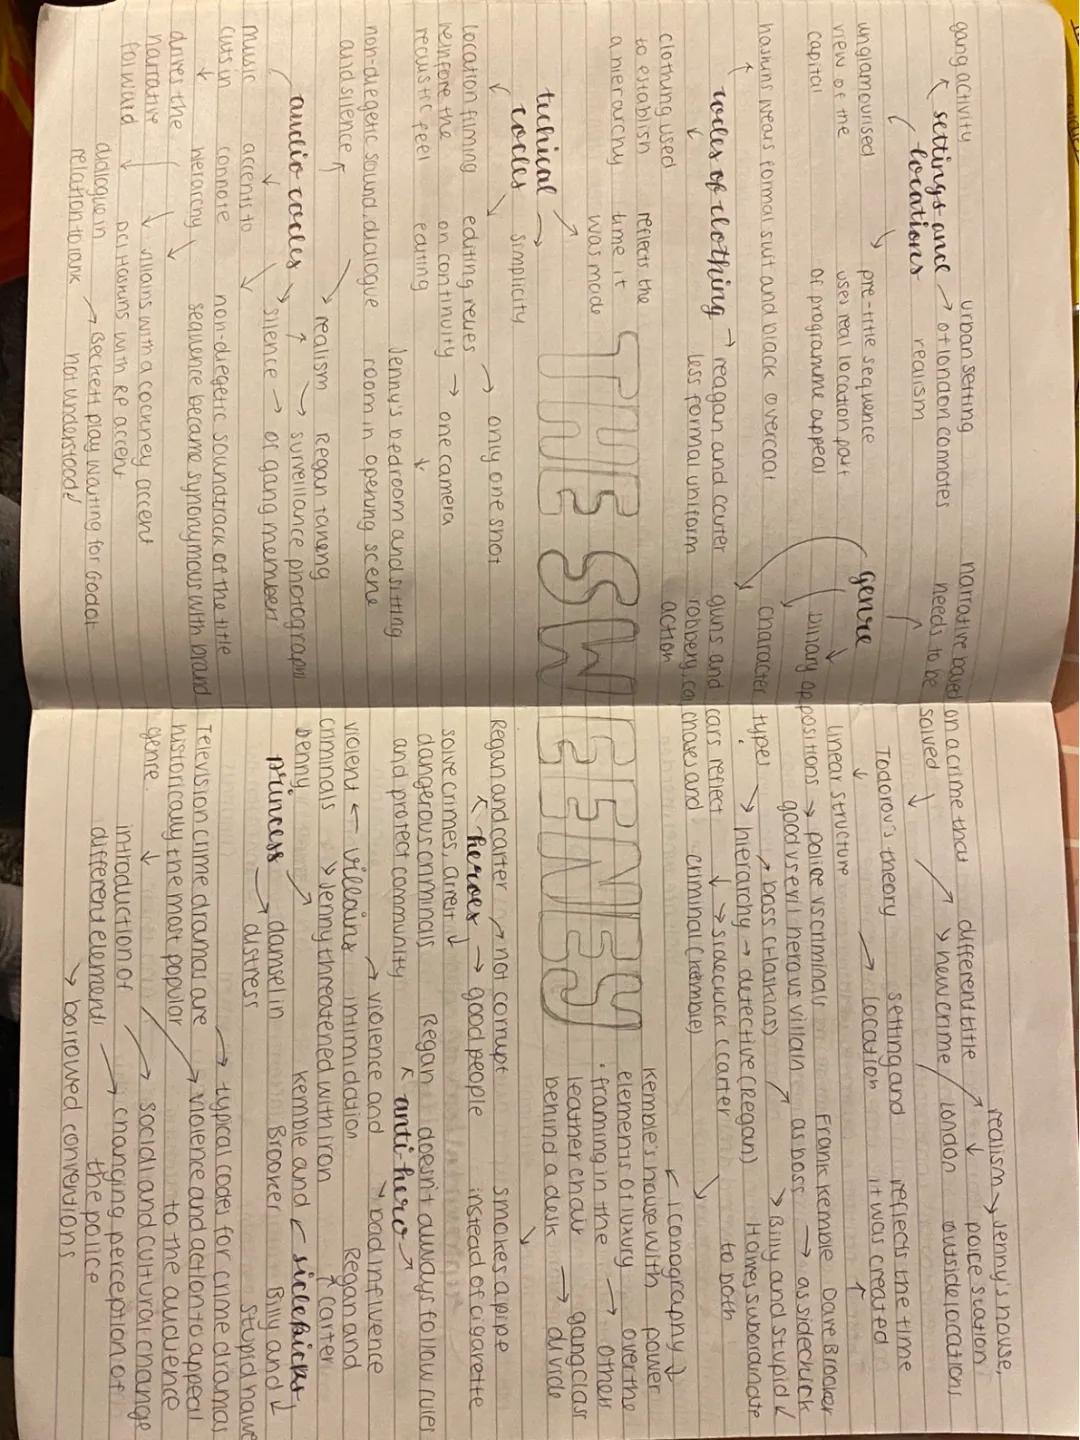 gang activity
urban setting
settings and → of london connotes
locations
realism
unglamourised
view of the
capital
pre-title sequence
uses real location part
of programme appeal
narrative based on a crime that
needs to be solved
genre
haskins wears formal suit and black overcoat
codes of clothing → reagan and carter
less formal uniform
clothing used
to establish
a hierarchy
reflects the
time it
was made
guns and
robbery, car chases and
action
techical
codes
simplicity
location filming
reinforce the
realistic feel
editing relies
on continuity → one camera
editing
only one shot
THE SWEENEY
non-diegetic sound, dialogue
and silence
Jenny's bedroom and sitting
room in opening scene
audio codes
realism
silence → of gang members
Regan taking
surveillance photographs
music
cuts in
drives the
narrative
forward
accents to
connote
hierarchy
non-diegetic soundtrack of the title
sequence became synonymous with brand
villains with a cockney accent
DCI Haskins with RP accent
dialogue in
relation to rank
Beckett play Waiting for Godot
not understood
different title
new crime
realism → Jenny's house,
police station
london
outside locations
Todorov's theory
linear structure
location
setting and
reflects the time
it was created
binary oppositions → police vs criminals
good vs evil heros vs villain
Frank Kemble
as boss
Dave Brooker
as sidekick
character types → hierarchy → detective (Regan)
boss (Haskins)
Billy and stupid
Howes subordinate
to both
cars reflect
sidekick (carter
criminal (kemble)
iconography
Kemble's house with
elements of luxury
power
over the
others
framing in the
leather chair
behind a desk
gang class
divide
Regan and carter → not corrupt
heroes → good people
solve crimes, arrest
dangerous criminals
and protect community
smokes a pipe
instead of cigarette
Regan doesn't always follow rules
anti-hero
violent ← villains
criminals
violence and
intimidation
bad influence
Jenny threatened with iron
Regan and
carter
Jenny
princess
damsel in
distress
kemble and
Brooker
sidekicks
Billy and
stupid howe
Television crime dramas are
historically the most popular
genre.
typical codes for crime dramas
violence and action to appeal
to the audience
introduction of
different elements
social and cultural change
changing perception of
the police
borrowed conventions